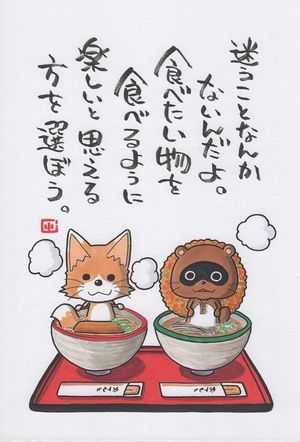 迷うことなんか
ないんだよ。
食べたい物を
食べるように
楽しいと思える
方を選ぼう。